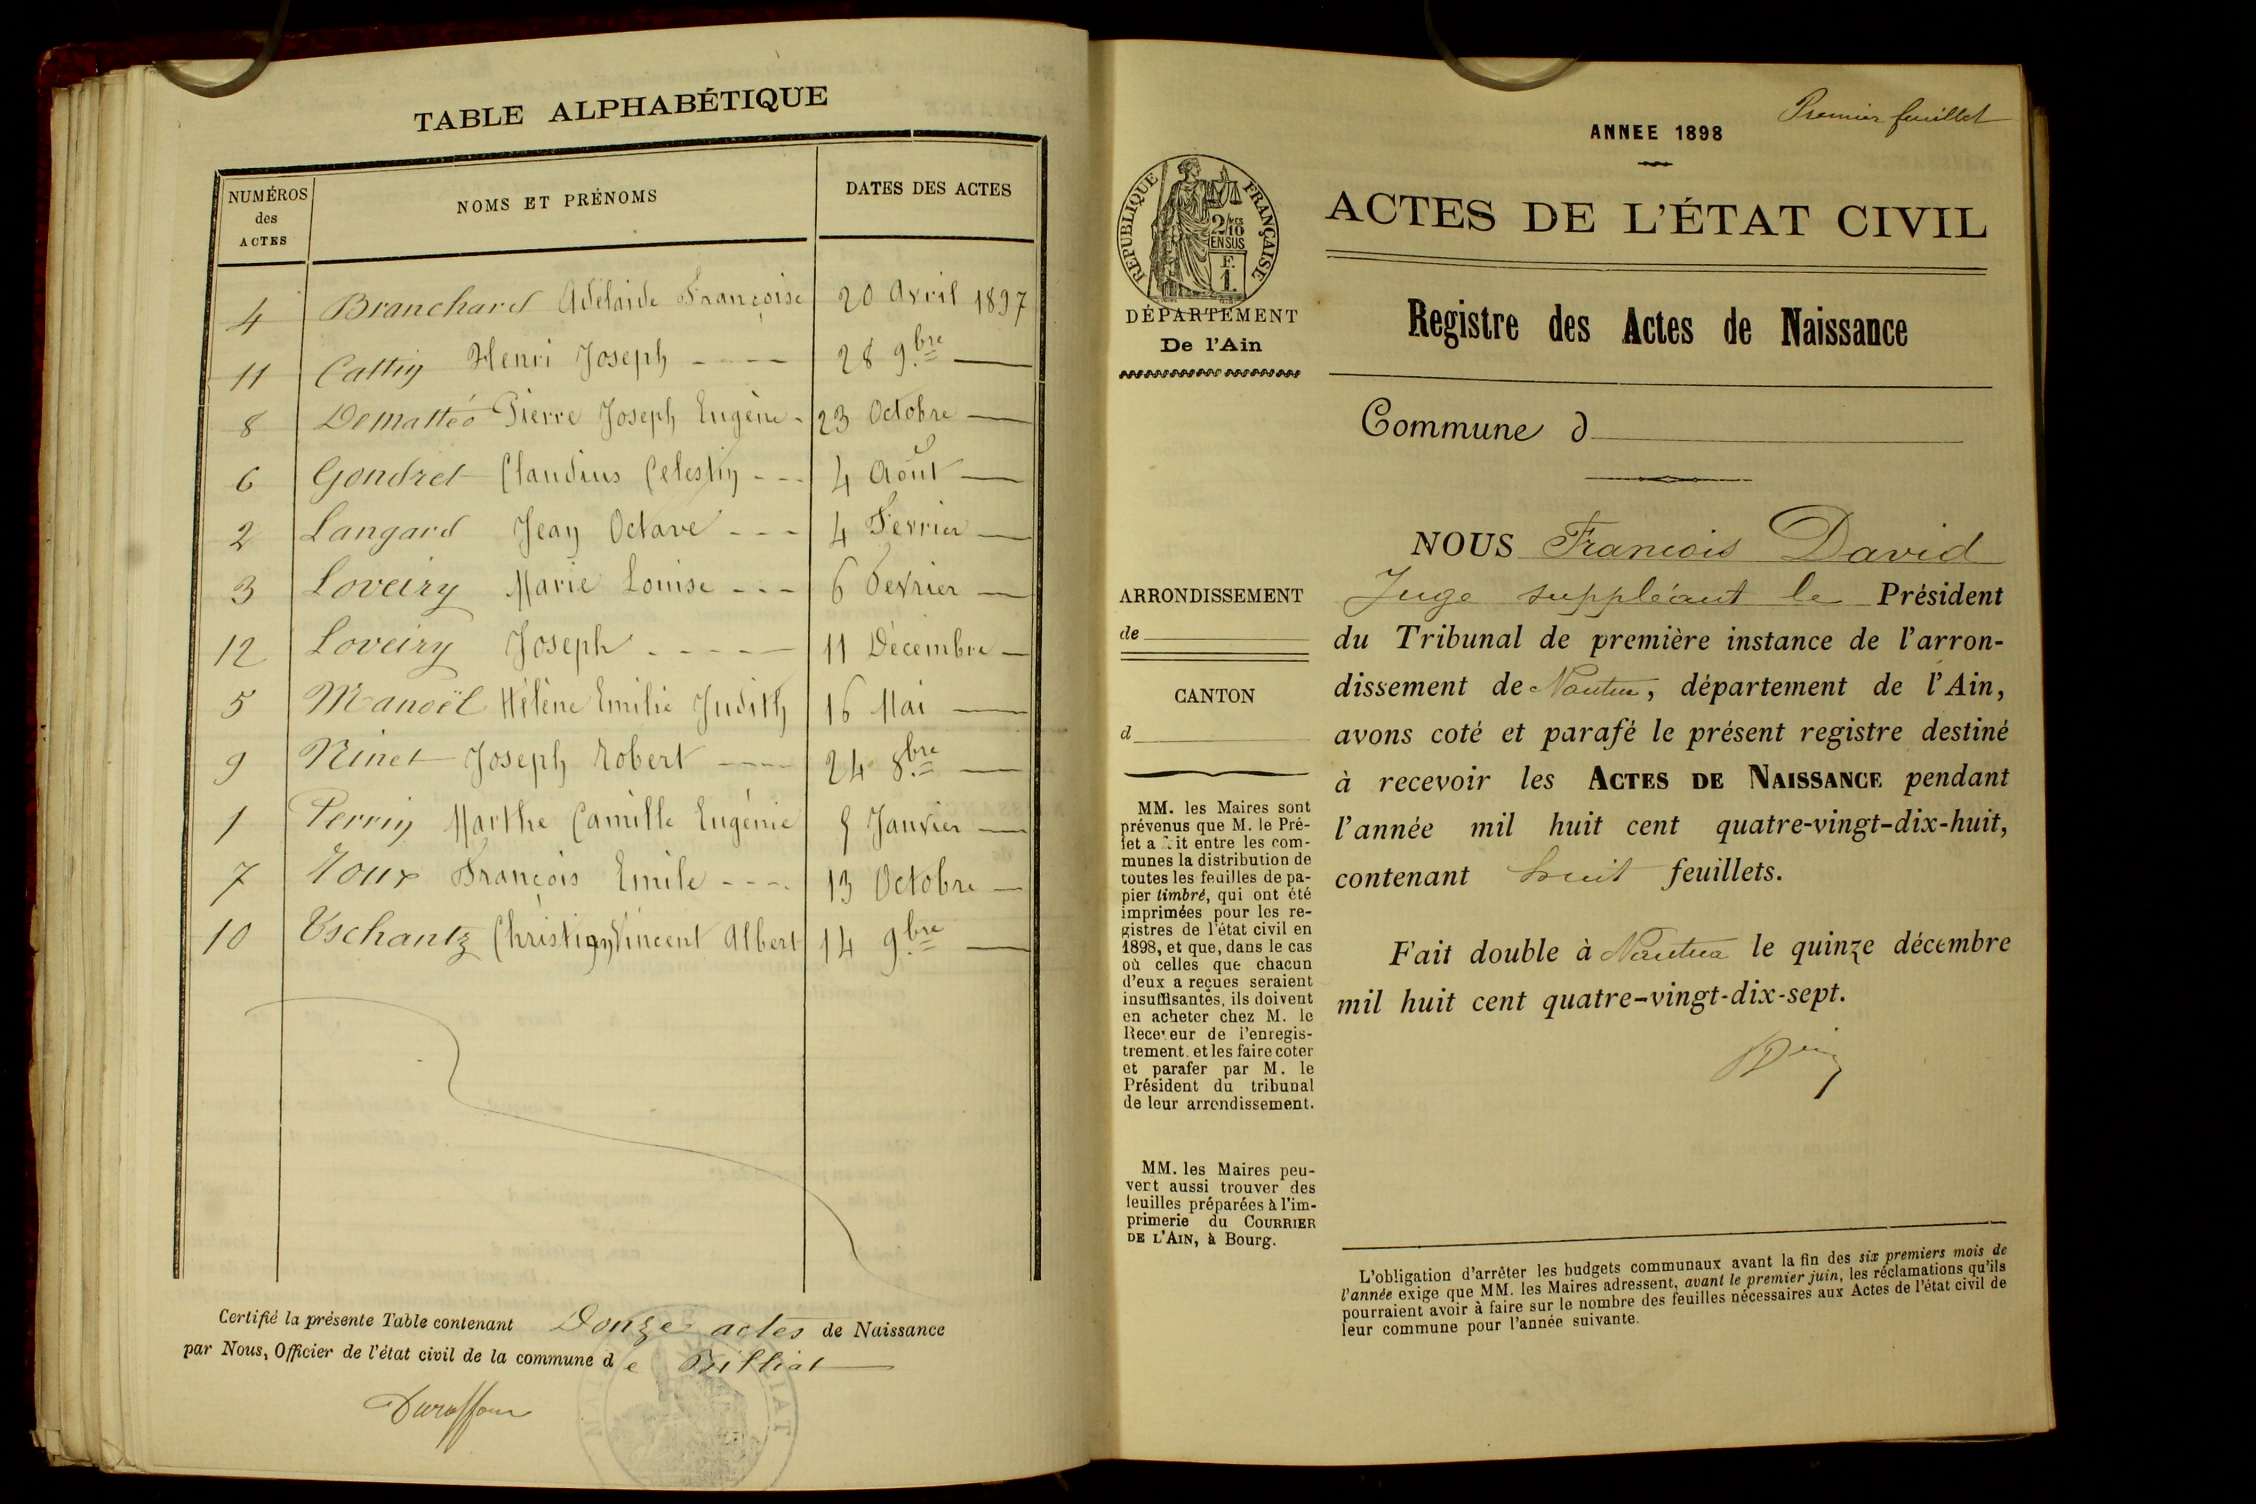 TABLE ALPHABÉTIQUE
NUMÉROS des ACTES
NOMS ET PRÉNOMS
DATES DES ACTES
4 Branchard Adélaide Françoise 20 Avril 1897
11 Cattin Henri Joseph - - - - 28 9.bre —
8 Dematteo Pierre Joseph Eugène - 23 Octobre —
6 Gondret Claudius Celestin - - - 4 Août —
2 Langard Jean Octave - - - 4 Fevrier —
3 Loveiry Marie Louise - - - 6 Fevrier —
12 Loveiry Joseph - - - - - 11 Décembre —
5 Manoël Hélène Emilie Judith 16 Mai —
9 Ninet Joseph Robert - - - - 24 8.bre —
1 Perrin Marthe Camille Eugénie 5 Janvier —
7 Roux François Emile - - - - 13 Octobre —
10 Tschantz Christian Vincent Albert 14 9.bre —
Certifié la présente Table contenant Douze actes de Naissance
par Nous, Officier de l'état civil de la commune de Billiat
Duraffour
Premier feuillet
ANNEE 1898
RÉPUBLIQUE FRANÇAISE
2/10
EN SUS
F.
1.
ACTES DE L'ÉTAT CIVIL
DÉPARTEMENT
De l'Ain
Registre des Actes de Naissance
Commune d
NOUS Francois David
Juge suppléant le Président
du Tribunal de première instance de l'arron-
dissement de Nantua, département de l'Ain,
avons coté et parafé le présent registre destiné
à recevoir les ACTES DE NAISSANCE pendant
l'année mil huit cent quatre-vingt-dix-huit,
contenant huit feuillets.
Fait double à Nantua le quinze décembre
mil huit cent quatre-vingt-dix-sept.
ARRONDISSEMENT
de
CANTON
d
MM. les Maires sont
prévenus que M. le Pré-
fet a fait entre les com-
munes la distribution de
toutes les feuilles de pa-
pier timbré, qui ont été
imprimées pour les re-
gistres de l'état civil en
1898, et que, dans le cas
où celles que chacun
d'eux a reçues seraient
insuffisantes, ils doivent
en acheter chez M. le
Receveur de l'enregis-
trement. et les faire coter
et parafer par M. le
Président du tribunal
de leur arrondissement.
MM. les Maires peu-
vent aussi trouver des
feuilles préparées à l'im-
primerie du COURRIER
DE L'AIN, à Bourg.
L'obligation d'arrêter les budgets communaux avant la fin des six premiers mois de
l'année exige que MM. les Maires adressent, avant le premier juin, les réclamations qu'ils
pourraient avoir à faire sur le nombre des feuilles nécessaires aux Actes de l'état civil de
leur commune pour l'année suivante.